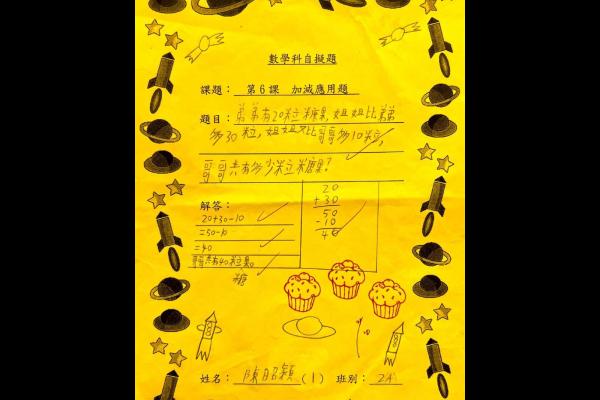 數學科自擬題
課題： 第6課 加減應用題
題目：弟弟有20粒糖果,姐姐比弟弟
多30粒,姐姐又比哥哥多10粒,
哥哥共有多少粒糖果?
解答：
20+30-10
=50-10
=40
哥哥共有40粒果。
糖
20
+30
50
-10
40
姓名：陳昭穎(1) 班別：2A